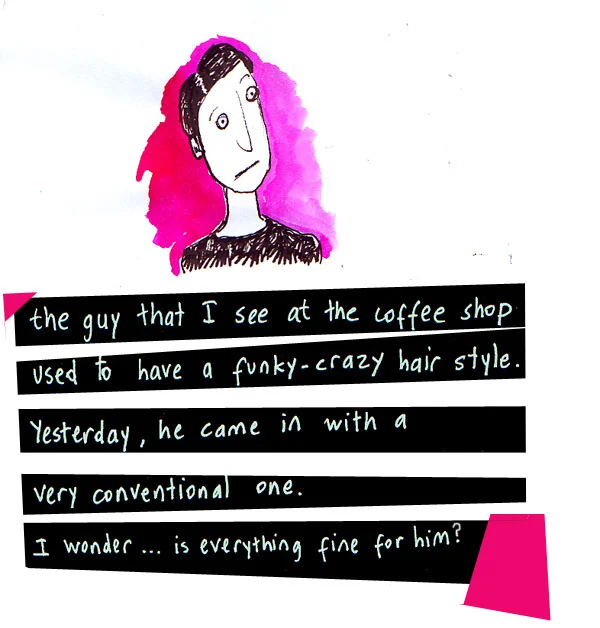 the guy that I see at the coffee shop
used to have a funky-crazy hair style.
Yesterday, he came in with a
very conventional one.
I wonder ... is everything fine for him?